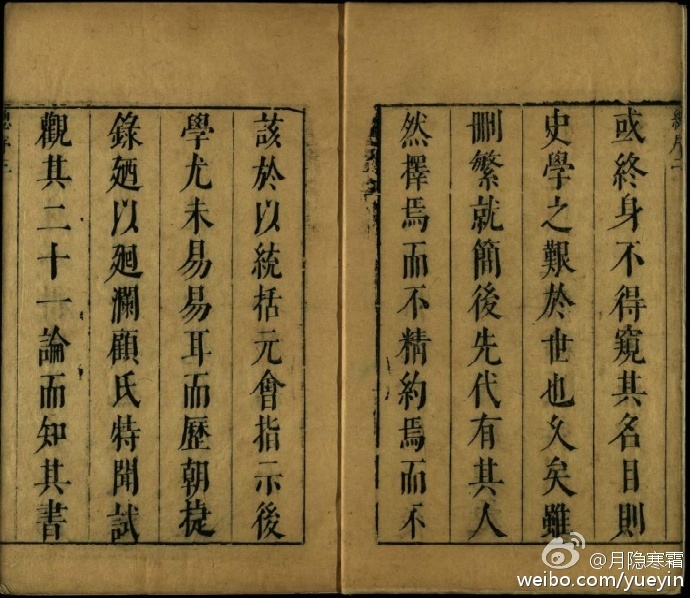 或終身不得窺其名目則
史學之艱於世也久矣雖
刪繁就簡後先代有其人
然擇焉而不精約焉而不
該於以統括元會指示後
學尤未易易耳而歷朝捷
錄廼以廻瀾顧氏特聞試
觀其二十一論而知其書
@月隐寒霜
weibo.com/yueyin